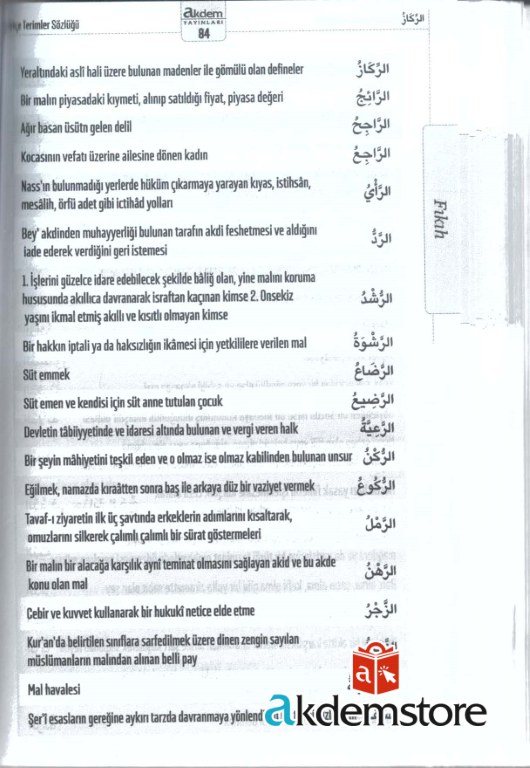 Terimler Sözlüğü
akdem
YAYINLARI
84
الرِّكَازُ
Yeraltındaki aslî hali üzere bulunan madenler ile gömülü olan defineler الرِّكَازُ
Bir malın piyasadaki kıymeti, alınıp satıldığı fiyat, piyasa değeri الرَّائِجُ
Ağır basan üsütn gelen delil الرَّاجِحُ
Kocasının vefatı üzerine ailesine dönen kadın الرَّاجِعُ
Nass'ın bulunmadığı yerlerde hüküm çıkarmaya yarayan kıyas, istihsân,
mesâlih, örfü adet gibi ictihâd yolları الرَّأْيُ
Bey' akdinden muhayyerliği bulunan tarafın akdi feshetmesi ve aldığını
iade ederek verdiğini geri istemesi الرَّدُّ
1. İşlerini güzelce idare edebilecek şekilde bâliğ olan, yine malını koruma
hususunda akıllıca davranarak israftan kaçınan kimse 2. Onsekiz
yaşını ikmal etmiş akıllı ve kısıtlı olmayan kimse الرُّشْدُ
Bir hakkın iptali ya da haksızlığın ikâmesi için yetkililere verilen mal الرَّشْوَةُ
Süt emmek الرَّضَاعُ
Süt emen ve kendisi için süt anne tutulan çocuk الرَّضِيعُ
Devletin tâbiiyyetinde ve idaresi altında bulunan ve vergi veren halk الرَّعِيَّةُ
Bir şeyin mâhiyetini teşkil eden ve o olmaz ise olmaz kabilinden bulunan unsur الرُّكْنُ
Eğilmek, namazda kıraâtten sonra baş ile arkaya düz bir vaziyet vermek الرُّكُوعُ
Tavaf-ı ziyaretin ilk üç şavtında erkeklerin adımlarını kısaltarak,
omuzlarını silkerek çalımlı çalımlı bir sürat göstermeleri الرَّمْلُ
Bir malın bir alacağa karşılık ayni teminat olmasını sağlayan akid ve bu akde
konu olan mal الرَّهْنُ
Cebir ve kuvvet kullanarak bir hukukî netice elde etme الزَّجْرُ
Kur'an'da belirtilen sınıflara sarfedilmek üzere dinen zengin sayılan
müslümanların malından alınan belli pay
Mal havalesi
Şer'î esasların gereğine aykırı tarzda davranmaya yönlend
Fıkıh
akdemstore